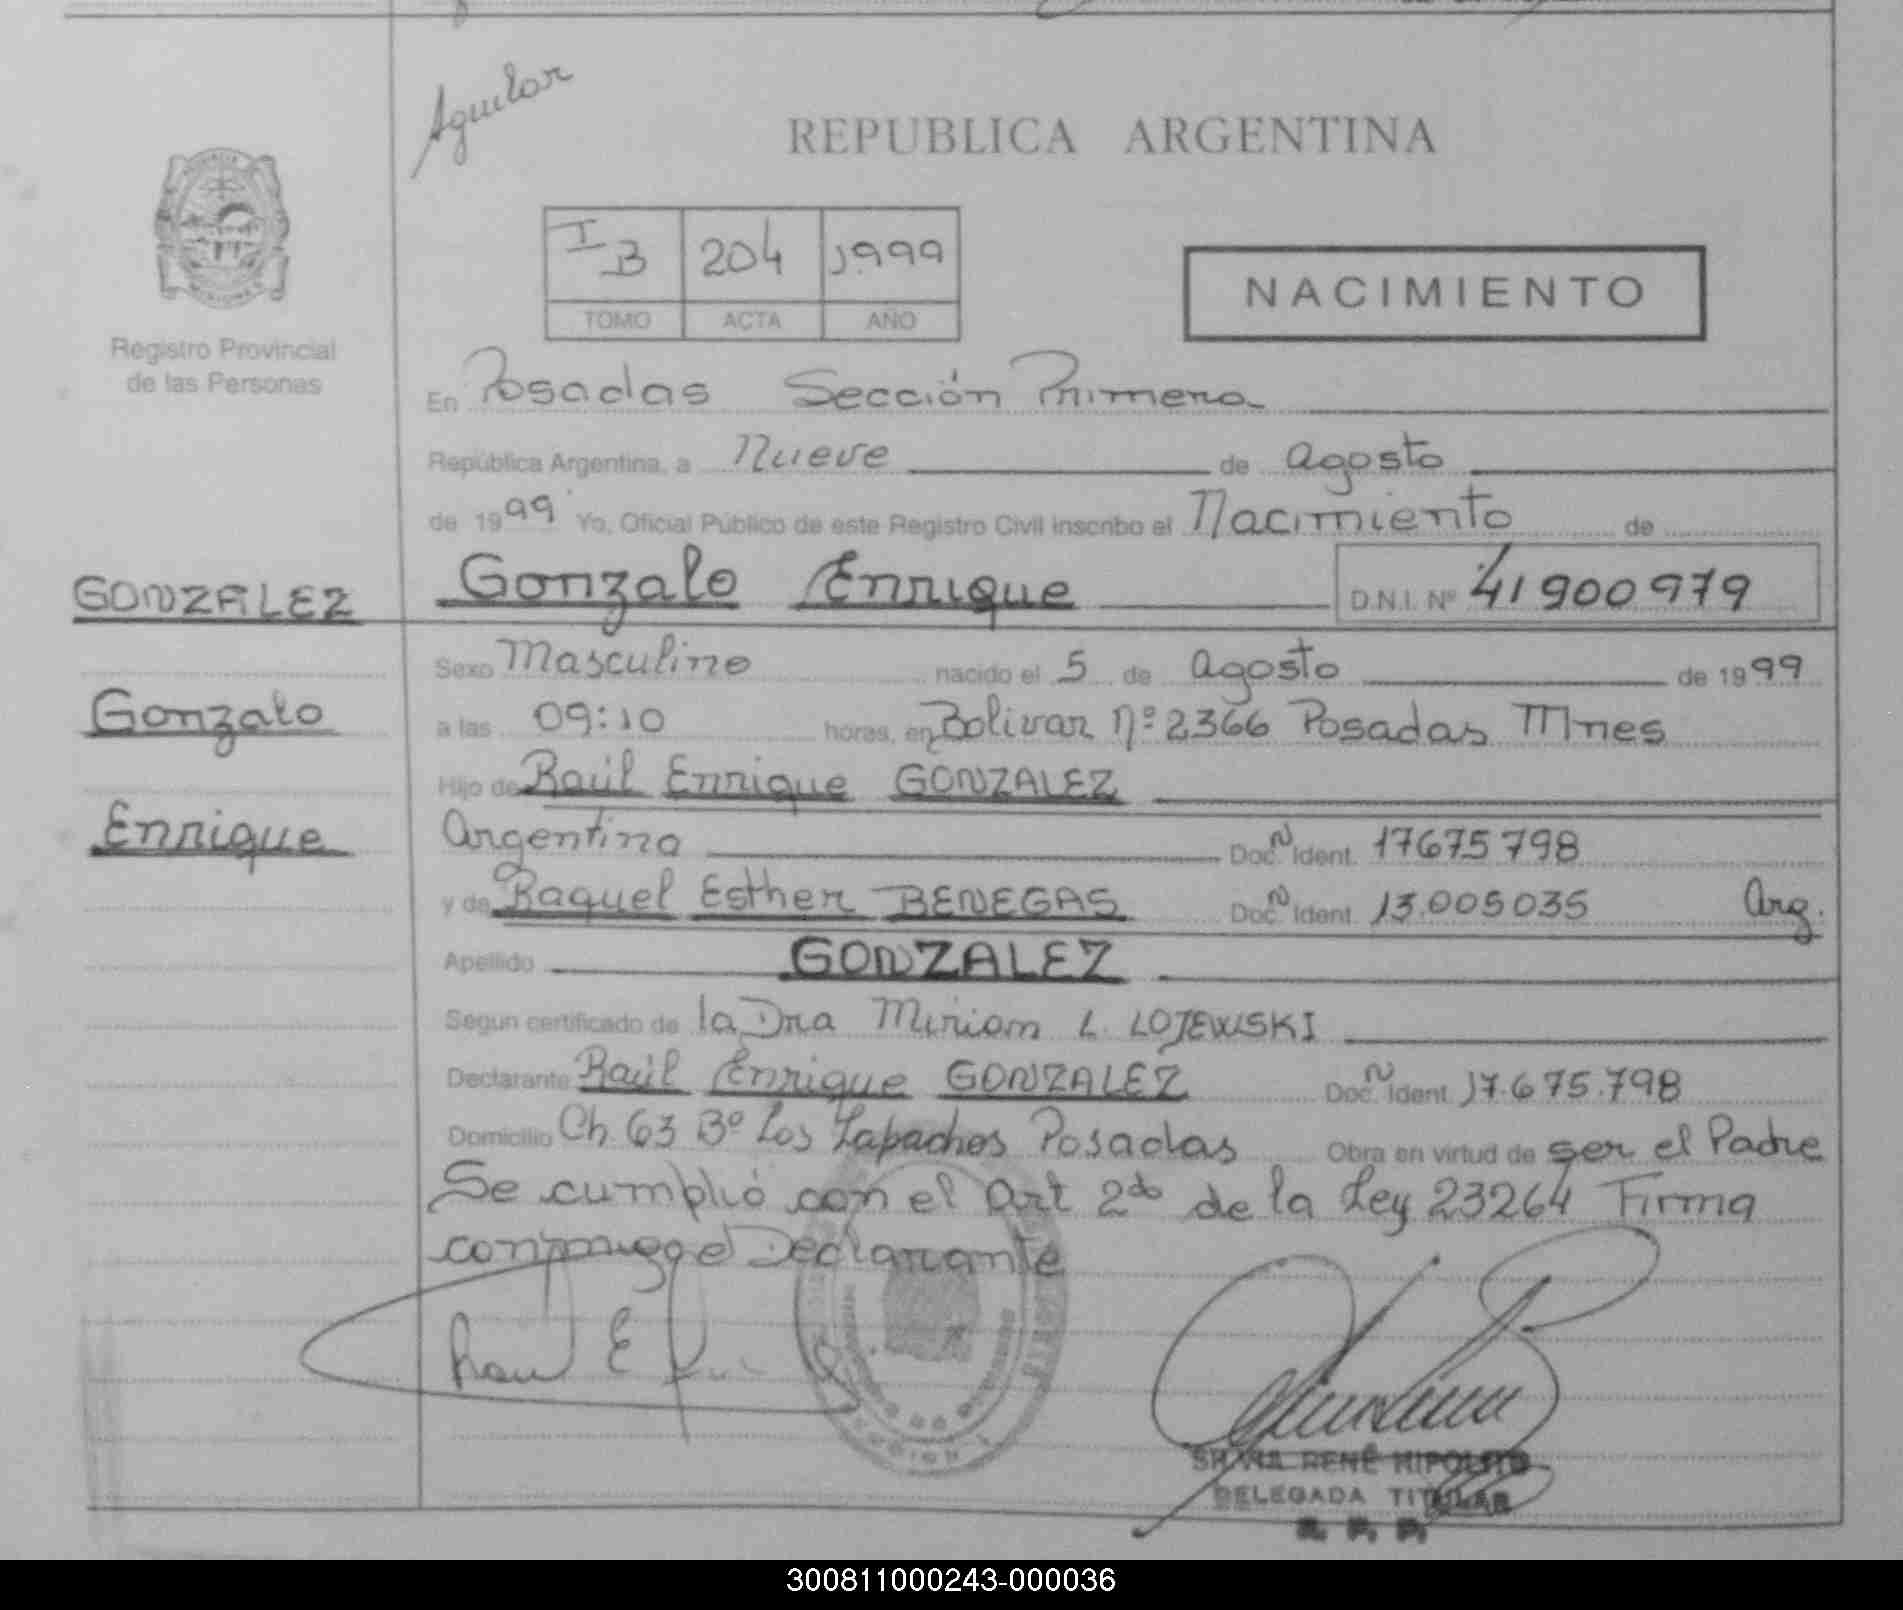 Aguilar
REPUBLICA ARGENTINA
MISIONES
I B 204 1999
TOMO ACTA AÑO
NACIMIENTO
Registro Provincial
de las Personas
En Posadas Sección Primera
República Argentina, a Nueve de agosto
de 1999 Yo, Oficial Público de este Registro Civil inscribo el Nacimiento de
GONZALEZ
Gonzalo Enrique D.N.I. Nº 41900979
Sexo Masculino nacido el 5 de agosto de 1999
Gonzalo
a las 09:10 horas, en Bolivar Nº 2366 Posadas Mnes
Hijo de Raúl Enrique GONZALEZ
Enrique
Argentina Doc. N Ident. 17675798
y de Raquel Esther BENEGAS Doc. N Ident. 13.005035 Arg.
Apellido GONZALEZ
Segun certificado de la Dra Miriam L. LOJEWSKI
Declarante Raúl Enrique GONZALEZ Doc. N Ident. 17.675.798
Domicilio Ch. 63 Bº Los Lapachos Posadas Obra en virtud de ser el Padre
Se cumplió con el Art 2do de la Ley 23264 Firma
conmigo el Declarante
SILVIA RENÉ HIPOLITO
DELEGADA TITULAR
R. P. P.
300811000243-000036